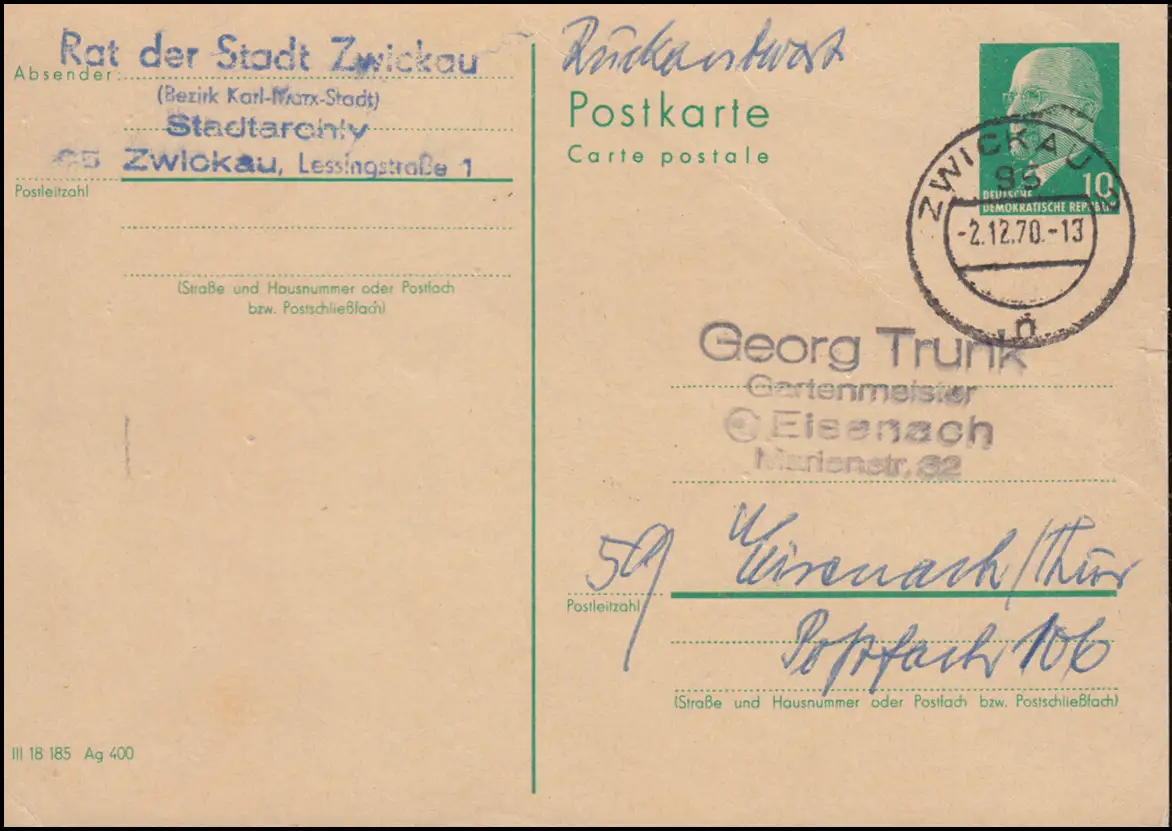 Rat der Stadt Zwickau
Absender:
(Bezirk Karl-Marx-Stadt)
Stadtarchiv
95 Zwickau, Lessingstraße 1
Postleitzahl
(Straße und Hausnummer oder Postfach
bzw. Postschließfach)
III 18 185 Ag 400
Rückantwort
Postkarte
Carte postale
10
DEUTSCHE
DEMOKRATISCHE REPUBLIK
ZWICKAU
95
-2.12.70.-13
n
Georg Trunk
Gartenmeister
Eisenach
Marienstr. 62
59
Eisenach/Thür
Postleitzahl
Postfach 106
(Straße und Hausnummer oder Postfach bzw. Postschließfach)